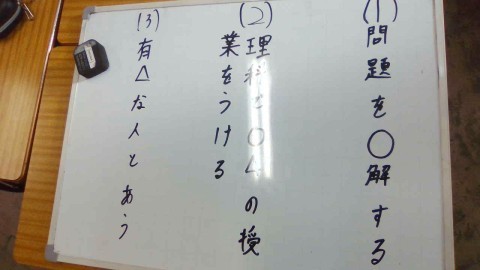 (1)問題を○解する
(2)理科と○△の授
業をうける
(3)有△な人とあう